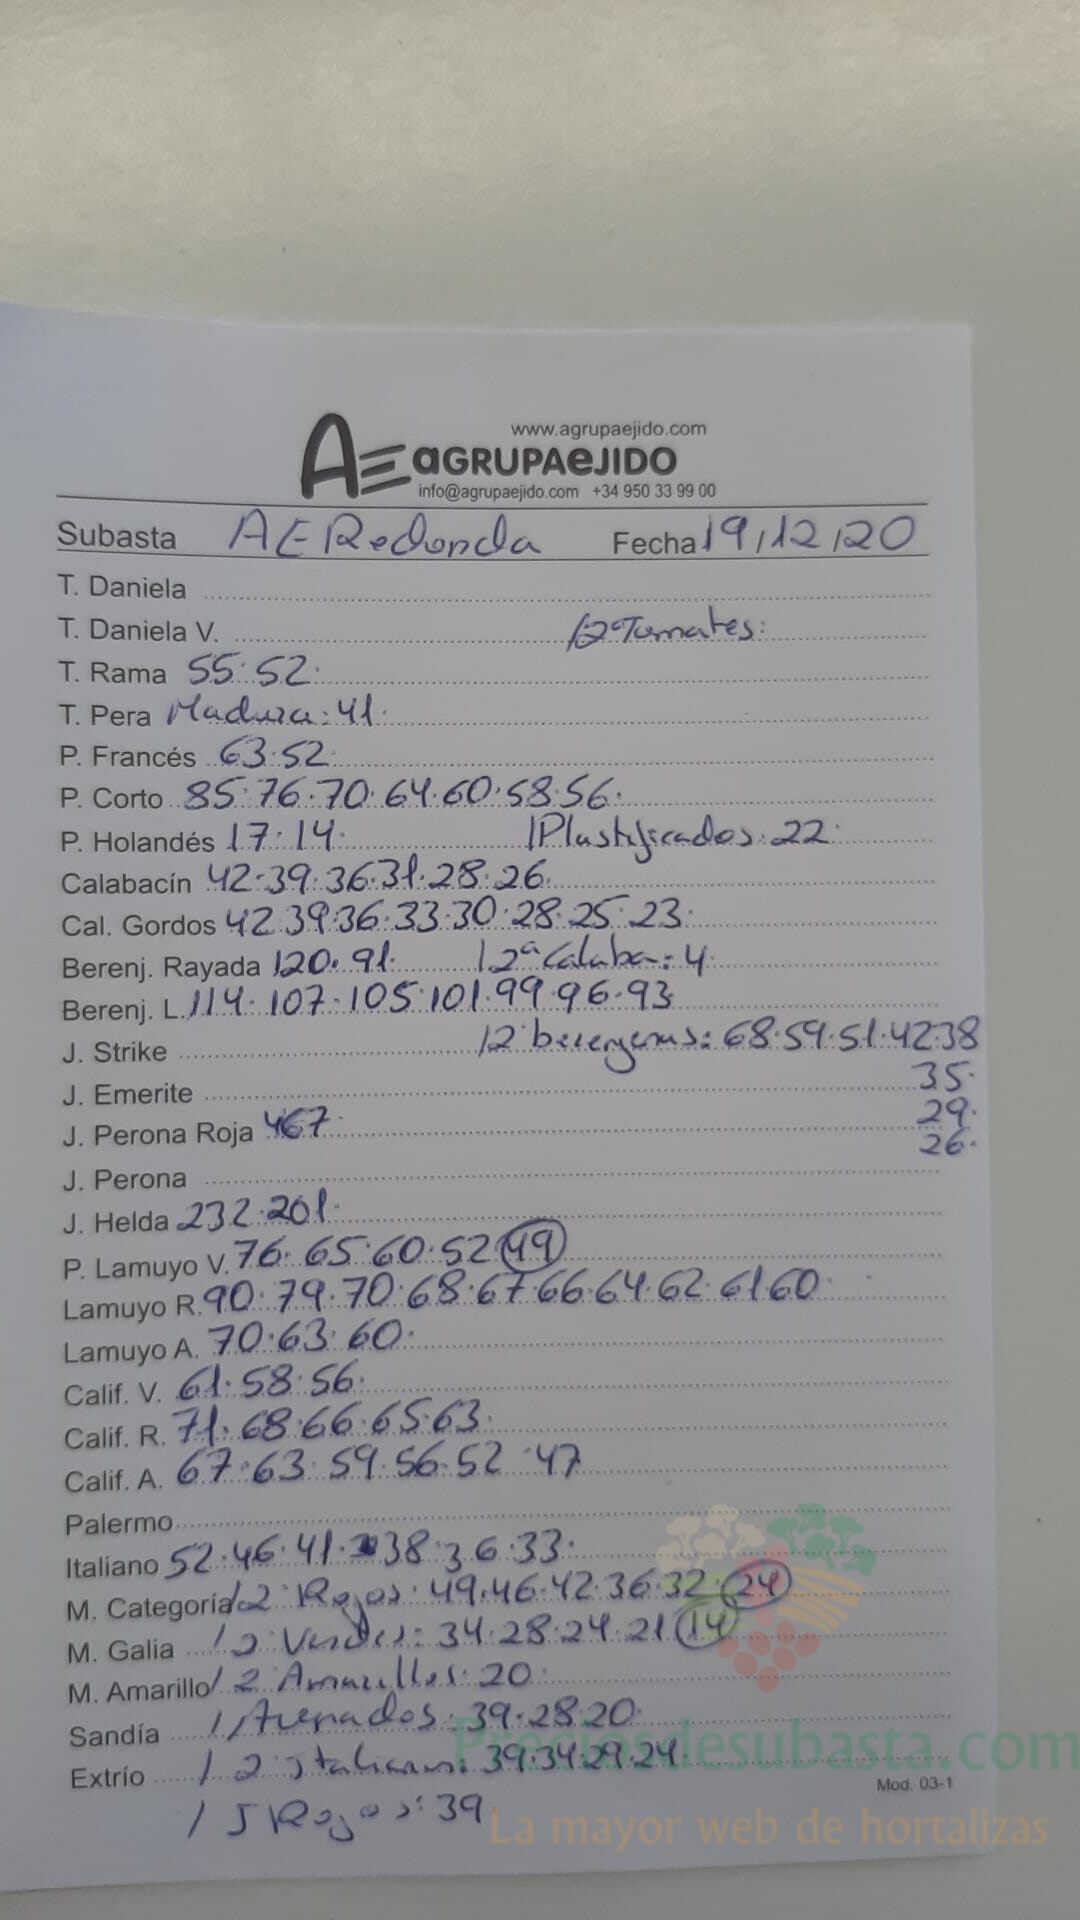 www.agrupaejido.com
AE aGRUPAeJIDO
info@agrupaejido.com +34 950 33 99 00
Subasta AE Redonda Fecha 19/12/20
T. Daniela
T. Daniela V. /2ª Tomates:
T. Rama 55·52·
T. Pera Madura: 41·
P. Francés 63·52·
P. Corto 85·76·70·64·60·58·56·
P. Holandés 17·14· /Plastificados: 22·
Calabacín 42·39·36·31·28·26·
Cal. Gordos 42·39·36·33·30·28·25·23·
Berenj. Rayada 120·91· /2ª Calaba: 4·
Berenj. L. 114·107·105·101·99·96·93
J. Strike /2 berengenas: 68·59·51·42·38
J. Emerite 35·
29·
J. Perona Roja 467· 26·
J. Perona
J. Helda 232·201·
P. Lamuyo V. 76·65·60·52·49
Lamuyo R. 90·79·70·68·67·66·64·62·61·60
Lamuyo A. 70·63·60·
Calif. V. 61·58·56·
Calif. R. 71·68·66·65·63·
Calif. A. 67·63·59·56·52·47
Palermo
Italiano 52·46·41·38·36·33·
M. Categoría /2 Rojos: 49·46·42·36·32·24
M. Galia /2 Verdes: 34·28·24·21·14
M. Amarillo /2 Amarillos: 20·
Sandía /Arenados: 39·28·20·
Preciosdesubasta.com
Extrío /2 italianos: 39·34·29·24·
Mod. 03-1
/J Rojos: 39
La mayor web de hortalizas